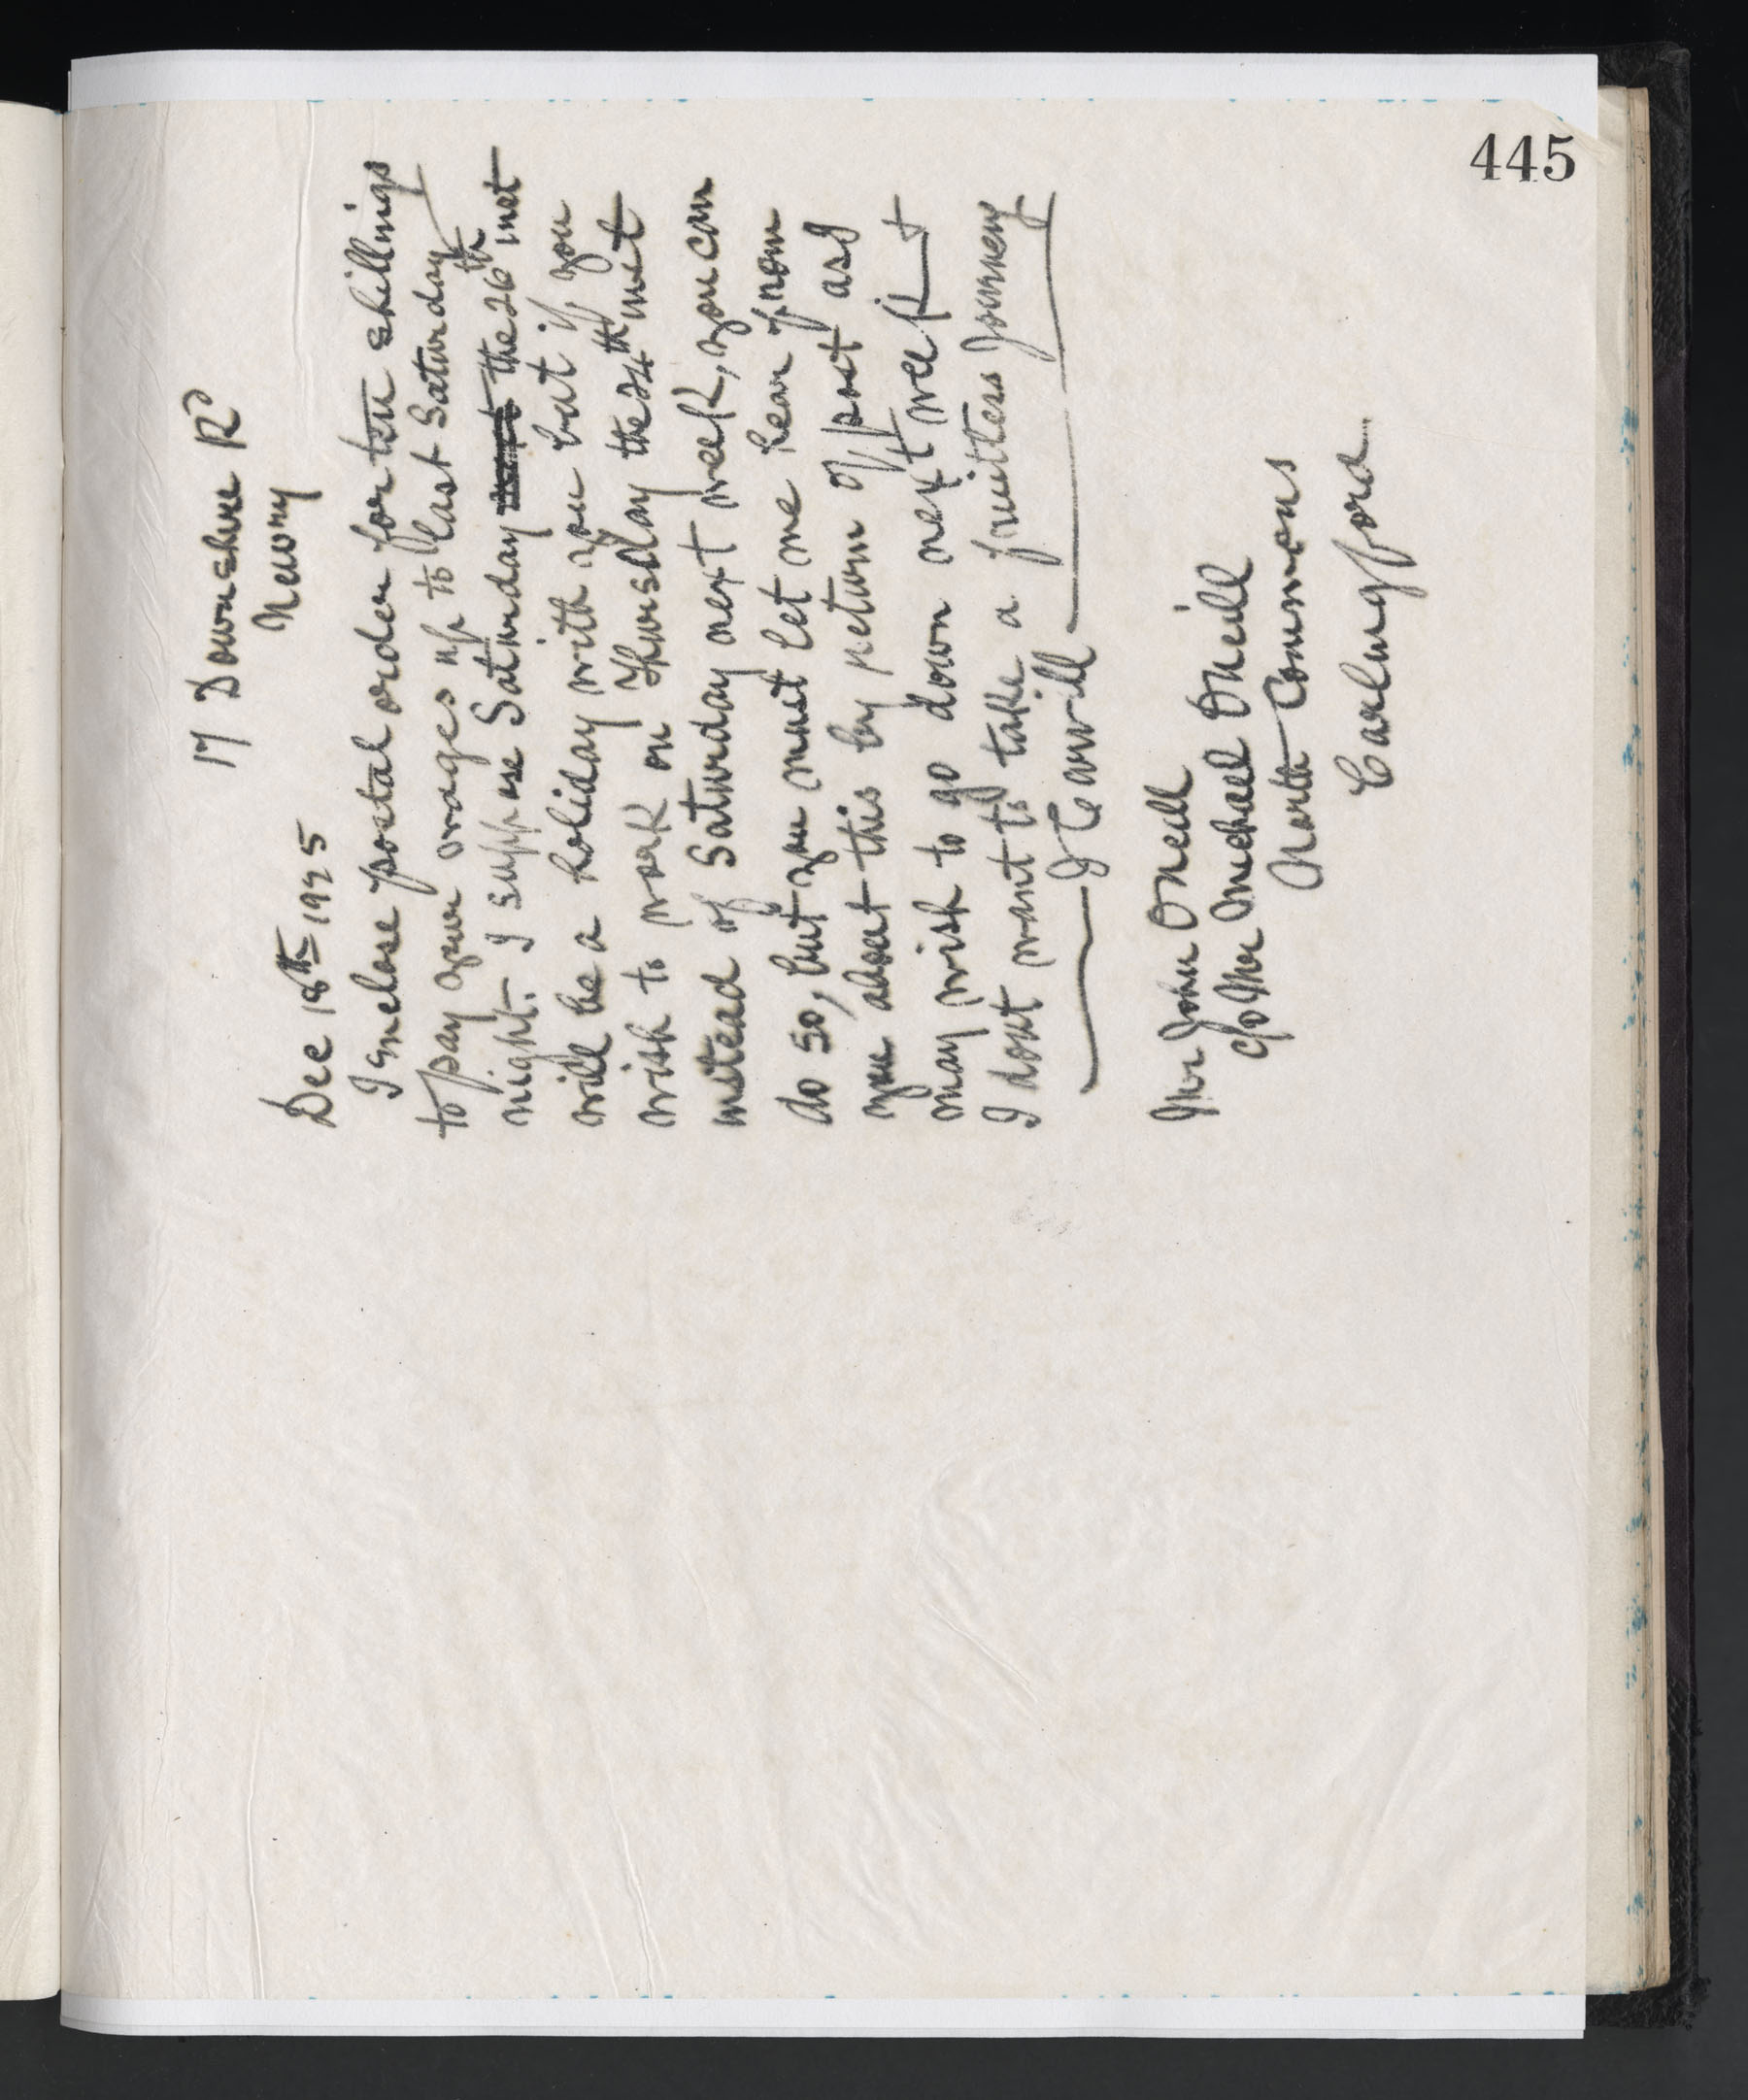 445
17 Downshire Rd
Newry
Dec 18th 1925
I enclose postal order for ten shillings
to pay your wages up to last Saturday
night. I suppose Saturday the 26th inst
will be a holiday with you but if you
wish to work on Thursday the 24th inst
instead of Saturday next week, you can
do so, but you must let me hear from
you about this by return of post as I
may wish to go down next week &
I dont want to take a fruitless Journey
Mr John ONeill
C/o Mr Michael ONeill
North Commons
Carlingford